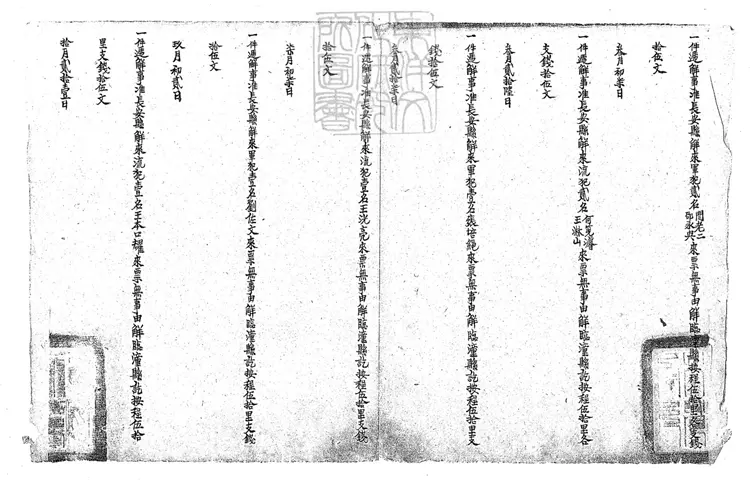 一件遞解事准長安縣解來軍犯貳名周老二鄧永興來票無事由解臨潼縣按程伍拾里各支錢
拾伍文
叁月初柒日
一件遞解事准長安縣解來流犯貳名王淋山來票無事由解臨潼縣訖按程伍拾里各
支錢拾伍文
叁月貳拾陸日
一件遞解事准長安縣解來軍犯壹名張培來票無事由解臨潼縣訖按程伍拾里支
錢拾伍文
叁月貳拾柒日
一件遞解事准長安縣解來流犯壹名王洸亮來票無事由解臨潼縣訖按程伍拾里支錢
拾伍文
柒月初柒日
一件遞解事准長安縣解來軍犯壹名劉佐文來票無事由解臨潼縣訖按程伍拾里支錢
拾伍文
玖月初貳日
一件遞解事准長安縣解來流犯壹名王本口耀來票無事由解臨潼縣訖按程伍拾
里支錢拾伍文
拾月貳拾壹日